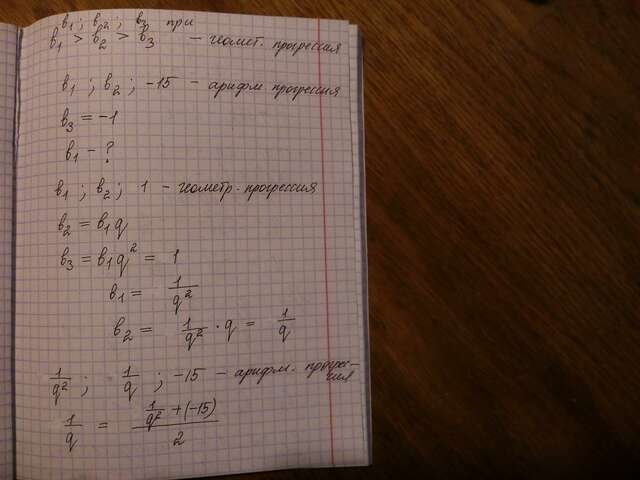 b₁; b₂; b₃ при
b₁ > b₂ > b₃ - геомет. прогрессия
b₁; b₂; -15 - арифм. прогрессия
b₃ = -1
b₁ - ?
b₁; b₂; 1 - геометр. прогрессия
b₂ = b₁q
b₃ = b₁q² = 1
b₁ = 1/q²
b₂ = 1/q² · q = 1/q
1/q²; 1/q; -15 - арифм. прогрес-
сия
1/q = (1/q² + (-15))/2